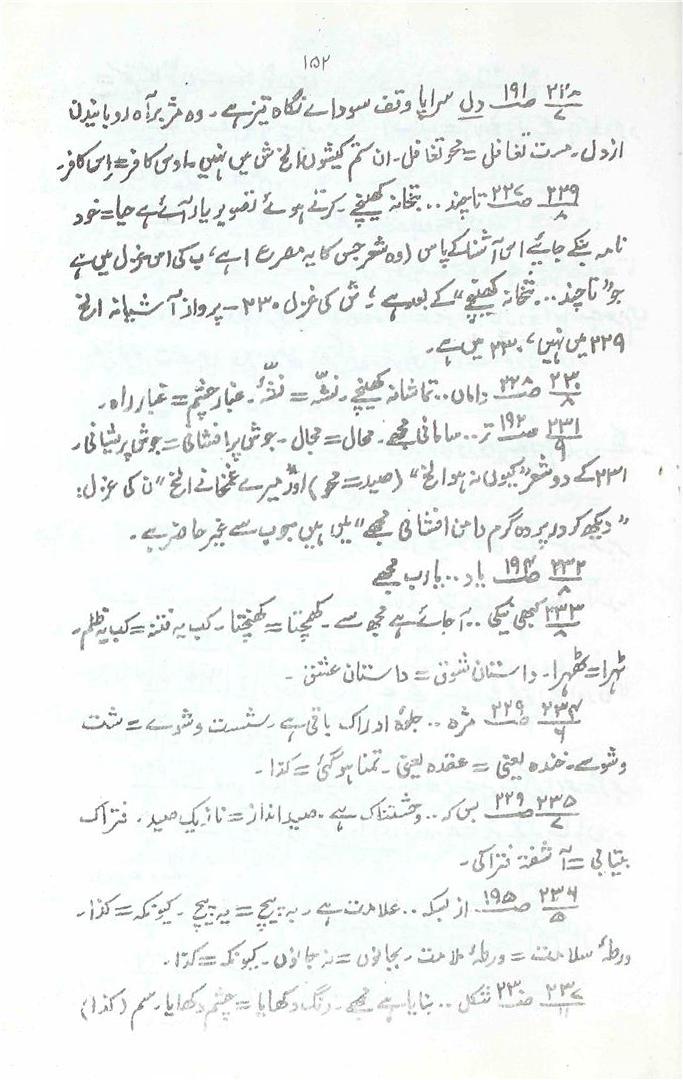 ۱۵۲
۲۲۸/۷ ص ۱۹۱ دل سراپا وقف سودائے نگاہ تیز ہے۔ وہ مژہ بر آہ رویانیدن
از دل۔ مست تغافل = محو تغافل۔ ان ستم کیشوں الخ ش میں نہیں۔ اوس کافر = اِس کافر۔
۲۲۹/۸ ص ۲۲۷ تا چند .. بتخانہ کھینچیے۔ کرتے ہوئے تصویر یار آئے ہے حیا = خود
نامہ بنکے جائیے اس آشنا کے پاس (وہ شعر جس کا یہ مصرع ا ہے، ب کی اس غزل میں ہے
جو "تا چند ... بتخانہ کھینچیے" کے بعد ہے، ش کی غزل ۲۳۰۔ پرواز آشیانہ الخ
۲۲۹ میں نہیں، ۲۳۰ میں ہے۔
۲۳۰/۸ ص ۲۲۸ داماں .. تماشا نہ کھینچیے۔ نشہ = نشّہ۔ غبار چشم = غبار راہ۔
۲۳۱/۹ ص ۱۹۲ تر .. سامانی مجھے۔ محال = مجال۔ جوش پرافشانی = جوش پریشانی۔
۲۳۱ کے دو شعر "کیوں نہ ہو الخ" (صید = محو) اور "میرے غمخانے الخ" ن کی غزل:
"دیکھ کر در پردہ گرم دامن افشانی مجھے" میں ہیں جو ب سے غیر حاضر ہے۔
۲۳۲/۸ ص ۱۹۴ یاد .. یارب مجھے
۲۳۳/۸ کبھی نیکی .. آ جائے ہے مجھ سے۔ کھچتا = کھنچتا۔ کب یہ فتنہ = کب یہ ظلم۔
ٹہرا = ٹھہرا۔ داستان شوق = داستان عشق۔
۲۳۴/۶ ص ۲۲۹ مژہ .. جلوۂ ادراک باقی ہے۔ شست وشوے = شت
وشوے۔ خندہ یعنی = عقدہ یعنی۔ تمنا ہوگئی = کذا۔
۲۳۵/۷ ص ۲۲۹ بس کہ .. وحشتناک ہے۔ صید انداز = نازیک صید۔ فتراک
بیتابی = آشفتہ فتراکی۔
۲۳۶/۵ ص ۱۹۵ از بسکہ .. علامت ہے۔ بہ پیچ = یہ پیچ۔ کیونکہ = کذا۔
ورطۂ سلامت = ورطۂ ملامت۔ بجانوں = نہ جانوں۔ کیونکہ = کذا۔
۲۳۷/۱۱ ص ۲۳۰ شکل .. بنایا ہے مجھے۔ رنگ دکھایا = چشم دکھایا۔ سم (کذا)